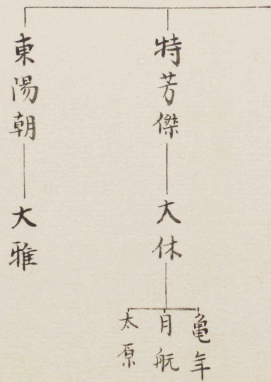 特芳傑
大休
亀年
月航
太原
東陽朝
大雅